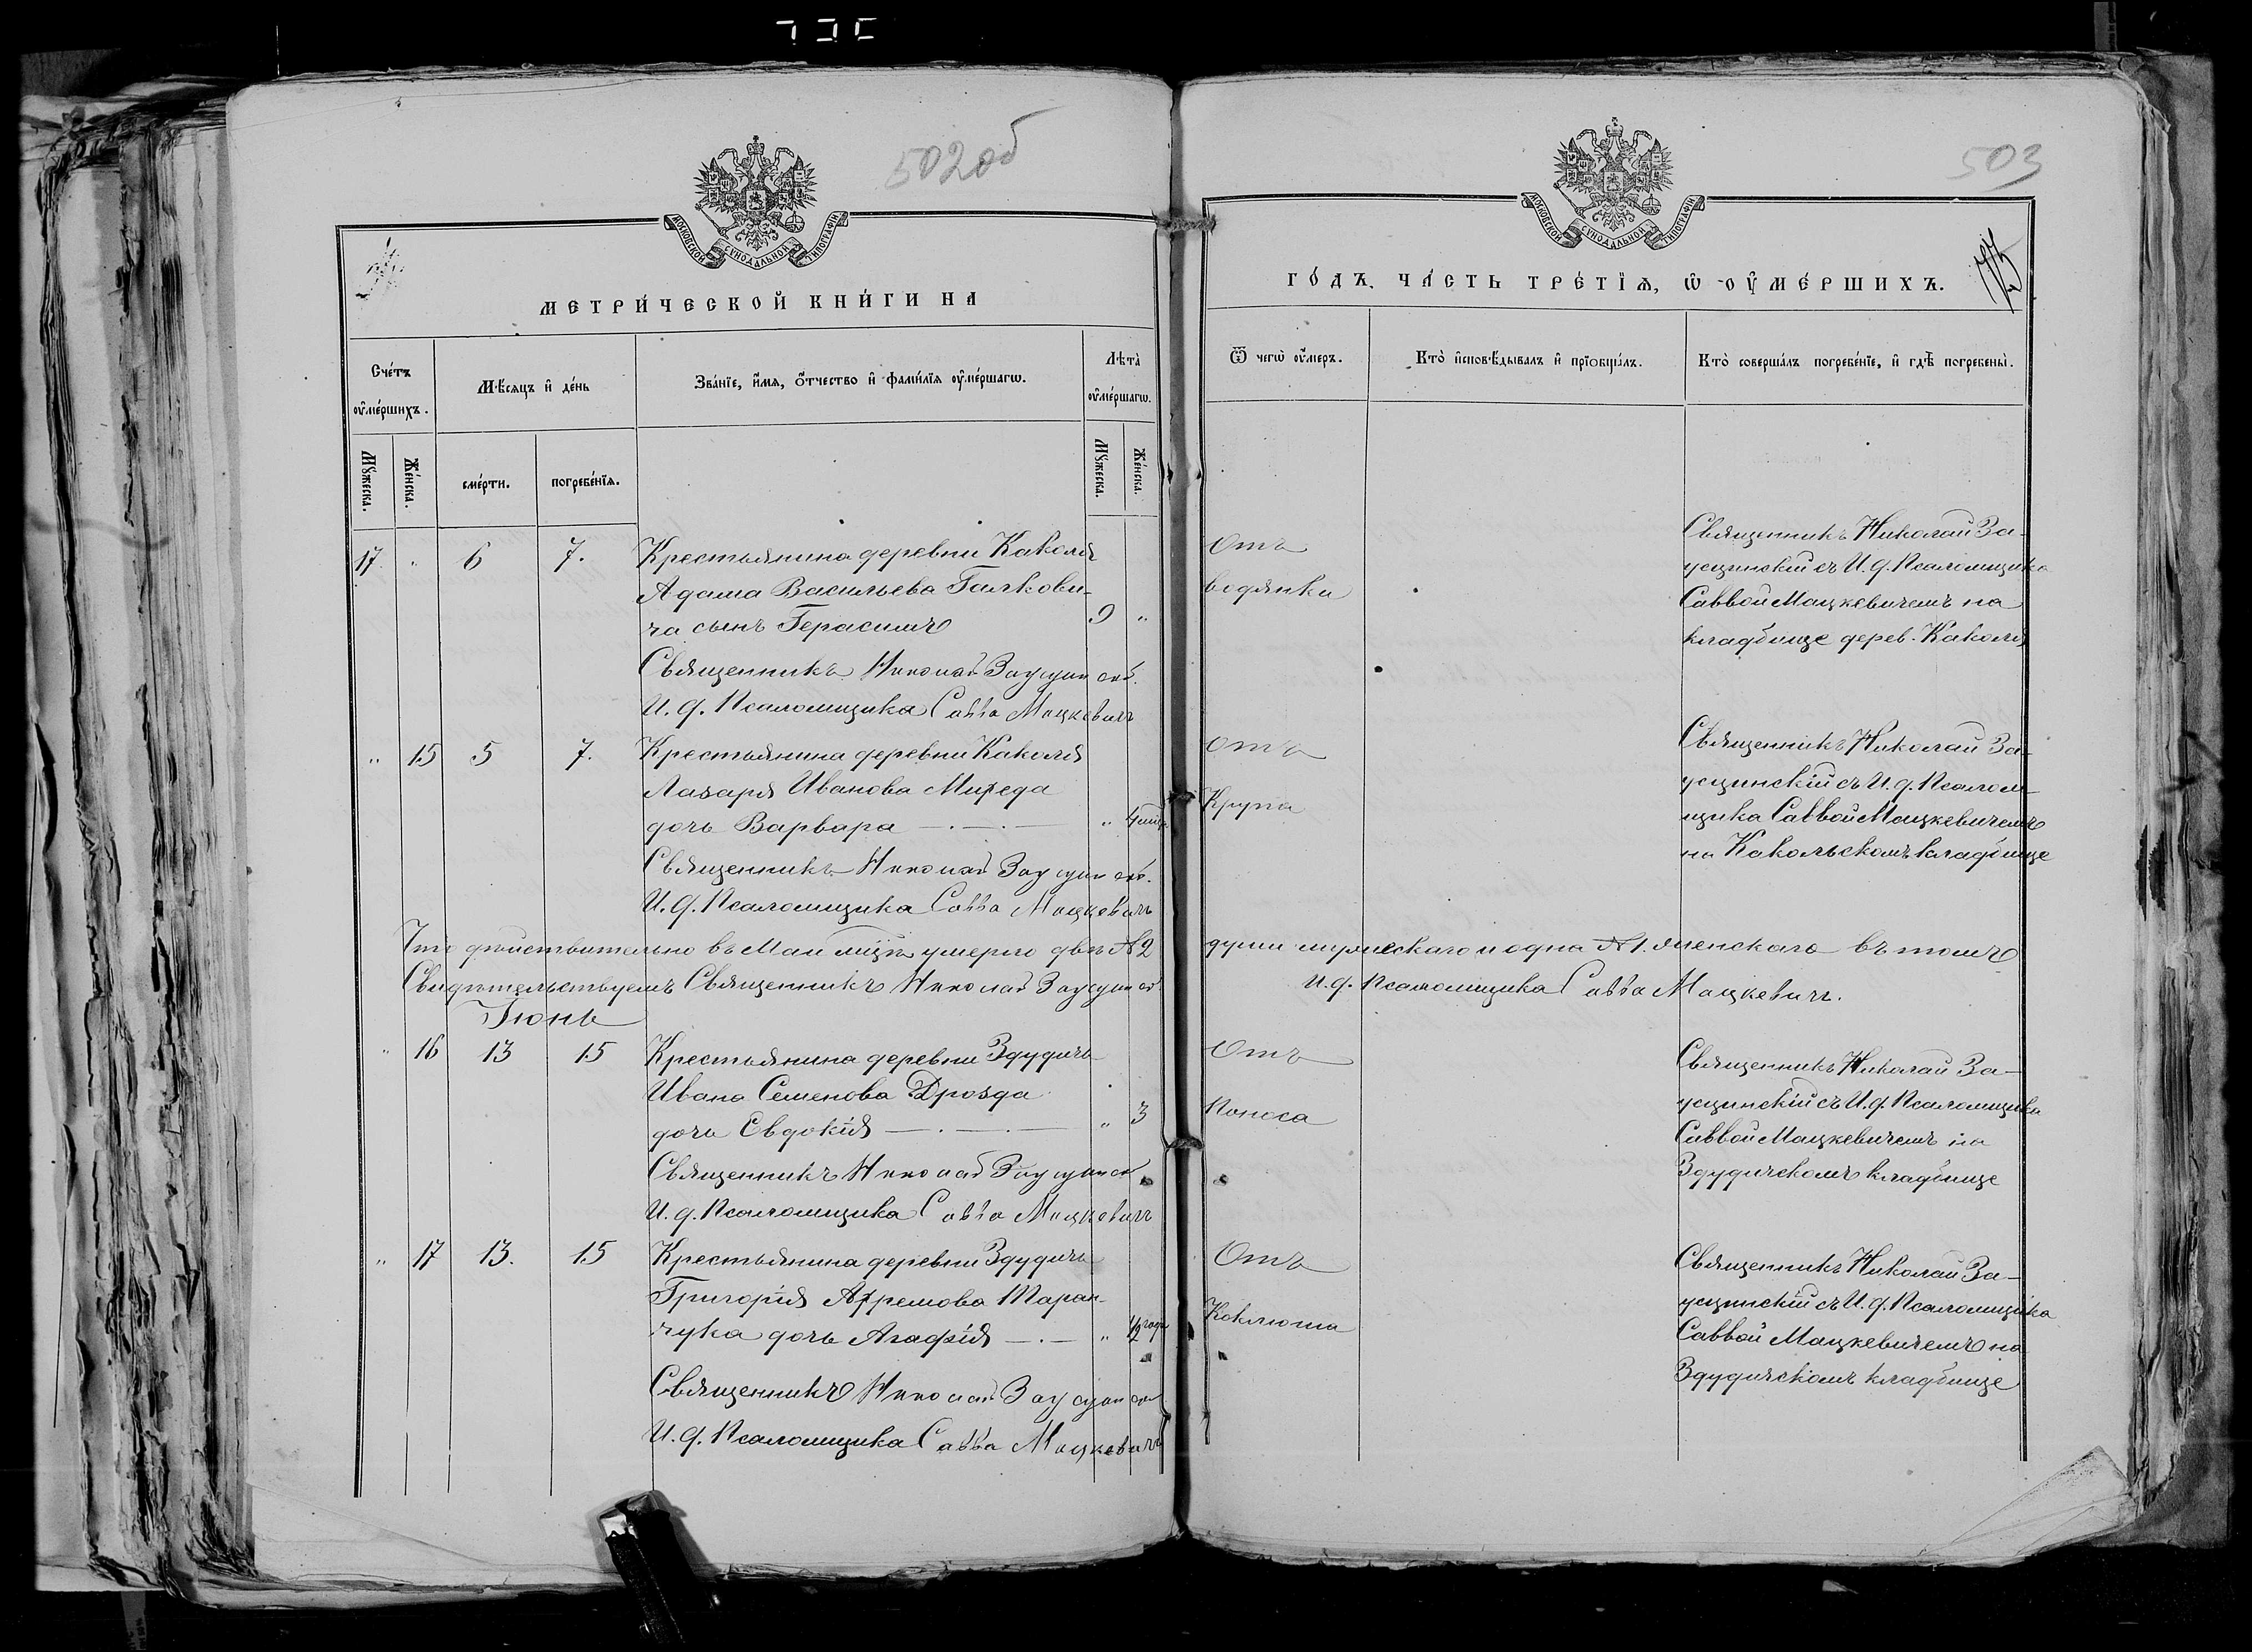 502 об
МОСКОВСКОЙ СѴНОДАЛЬНОЙ ТИПОГРАФІИ
МЕТРИ́ЧЕСКОЙ КНИ́ГИ НА
Сче́тъ ѹ҆ме́ршихъ.
Мѣ́сяцъ и҆ де́нь
Зва́нїе, и҆́мѧ, ѻ҆́тчество и҆ фами́лїѧ ѹ҆ме́ршагѡ.
Лѣ́та ѹ҆ме́ршагѡ.
Мꙋ́жеска.
Же́нска.
сме́рти.
погребе́нїѧ.
Мꙋ́жеска.
Же́нска.
17. „ 6 7. Крестьянина деревни Каколя
Адама Васильева Галкови-
ча сынъ Герасимъ 9 „
Священникъ Николай Заусцинскій.
И. д. Псаломщика Савва Мацкевичъ
„ 15 5 7. Крестьянина деревни Каколя
Лазаря Иванова
дочь Варвара „ 4
Священникъ Николай Заусцинскій.
И. д. Псаломщика Савва Мацкевичъ
Что дѣйствительно въ Маи мцѣ умерло двѣ № 2
Свидѣтельствуемъ Священникъ Николай Заусцинскій
Іюнь
„ 16 13 15 Крестьянина деревни Здудичь
Ивана Семенова Дрозда
дочь Евдокія „ 3
Священникъ Николай Заусцинскій
И. д. Псаломщика Савва Мацкевичъ
„ 17 13. 15 Крестьянина деревни Здудичь
Григорія Афремова Таран-
чука дочь Агафія „ ½ года
Священникъ Николай Заусцинскій
И. д. Псаломщика Савва Мацкевичъ
503
МОСКОВСКОЙ СѴНОДАЛЬНОЙ ТИПОГРАФІИ
ГО́ДЪ, ЧА́СТЬ ТРЕ́ТЇѦ, Ѡ҆ ОУ҆МЕ́РШИХЪ.
Ѿ чегѡ̀ ѹ҆́меръ.
Кто̀ и҆сповѣ́дывалъ и҆ прїѻбща́лъ.
Кто̀ соверша́лъ погребе́нїе, и҆ гдѣ̀ погребены̀.
Отъ
водянки
Священникъ Николай За-
усцинскій съ И. д. Псаломщика
Саввой Мацкевичемъ на
кладбище дерев. Каколя
Отъ
Крупа
Священникъ Николай За-
усцинскій съ И. д. Псалом-
щика Саввой Мацкевичемъ
на Какольскомъ кладбище
души мужескаго и одна № 1. женскаго въ томъ
И. д. Псаломщика Савва Мацкевичъ.
Отъ
Поноса
Священникъ Николай За-
усцинскій съ И. д. Псаломщика
Саввой Мацкевичемъ на
Здудичскомъ кладбище
Отъ
Коклюша
Священникъ Николай За-
усцинскій съ И. д. Псаломщика
Саввой Мацкевичемъ на
Здудичскомъ кладбище